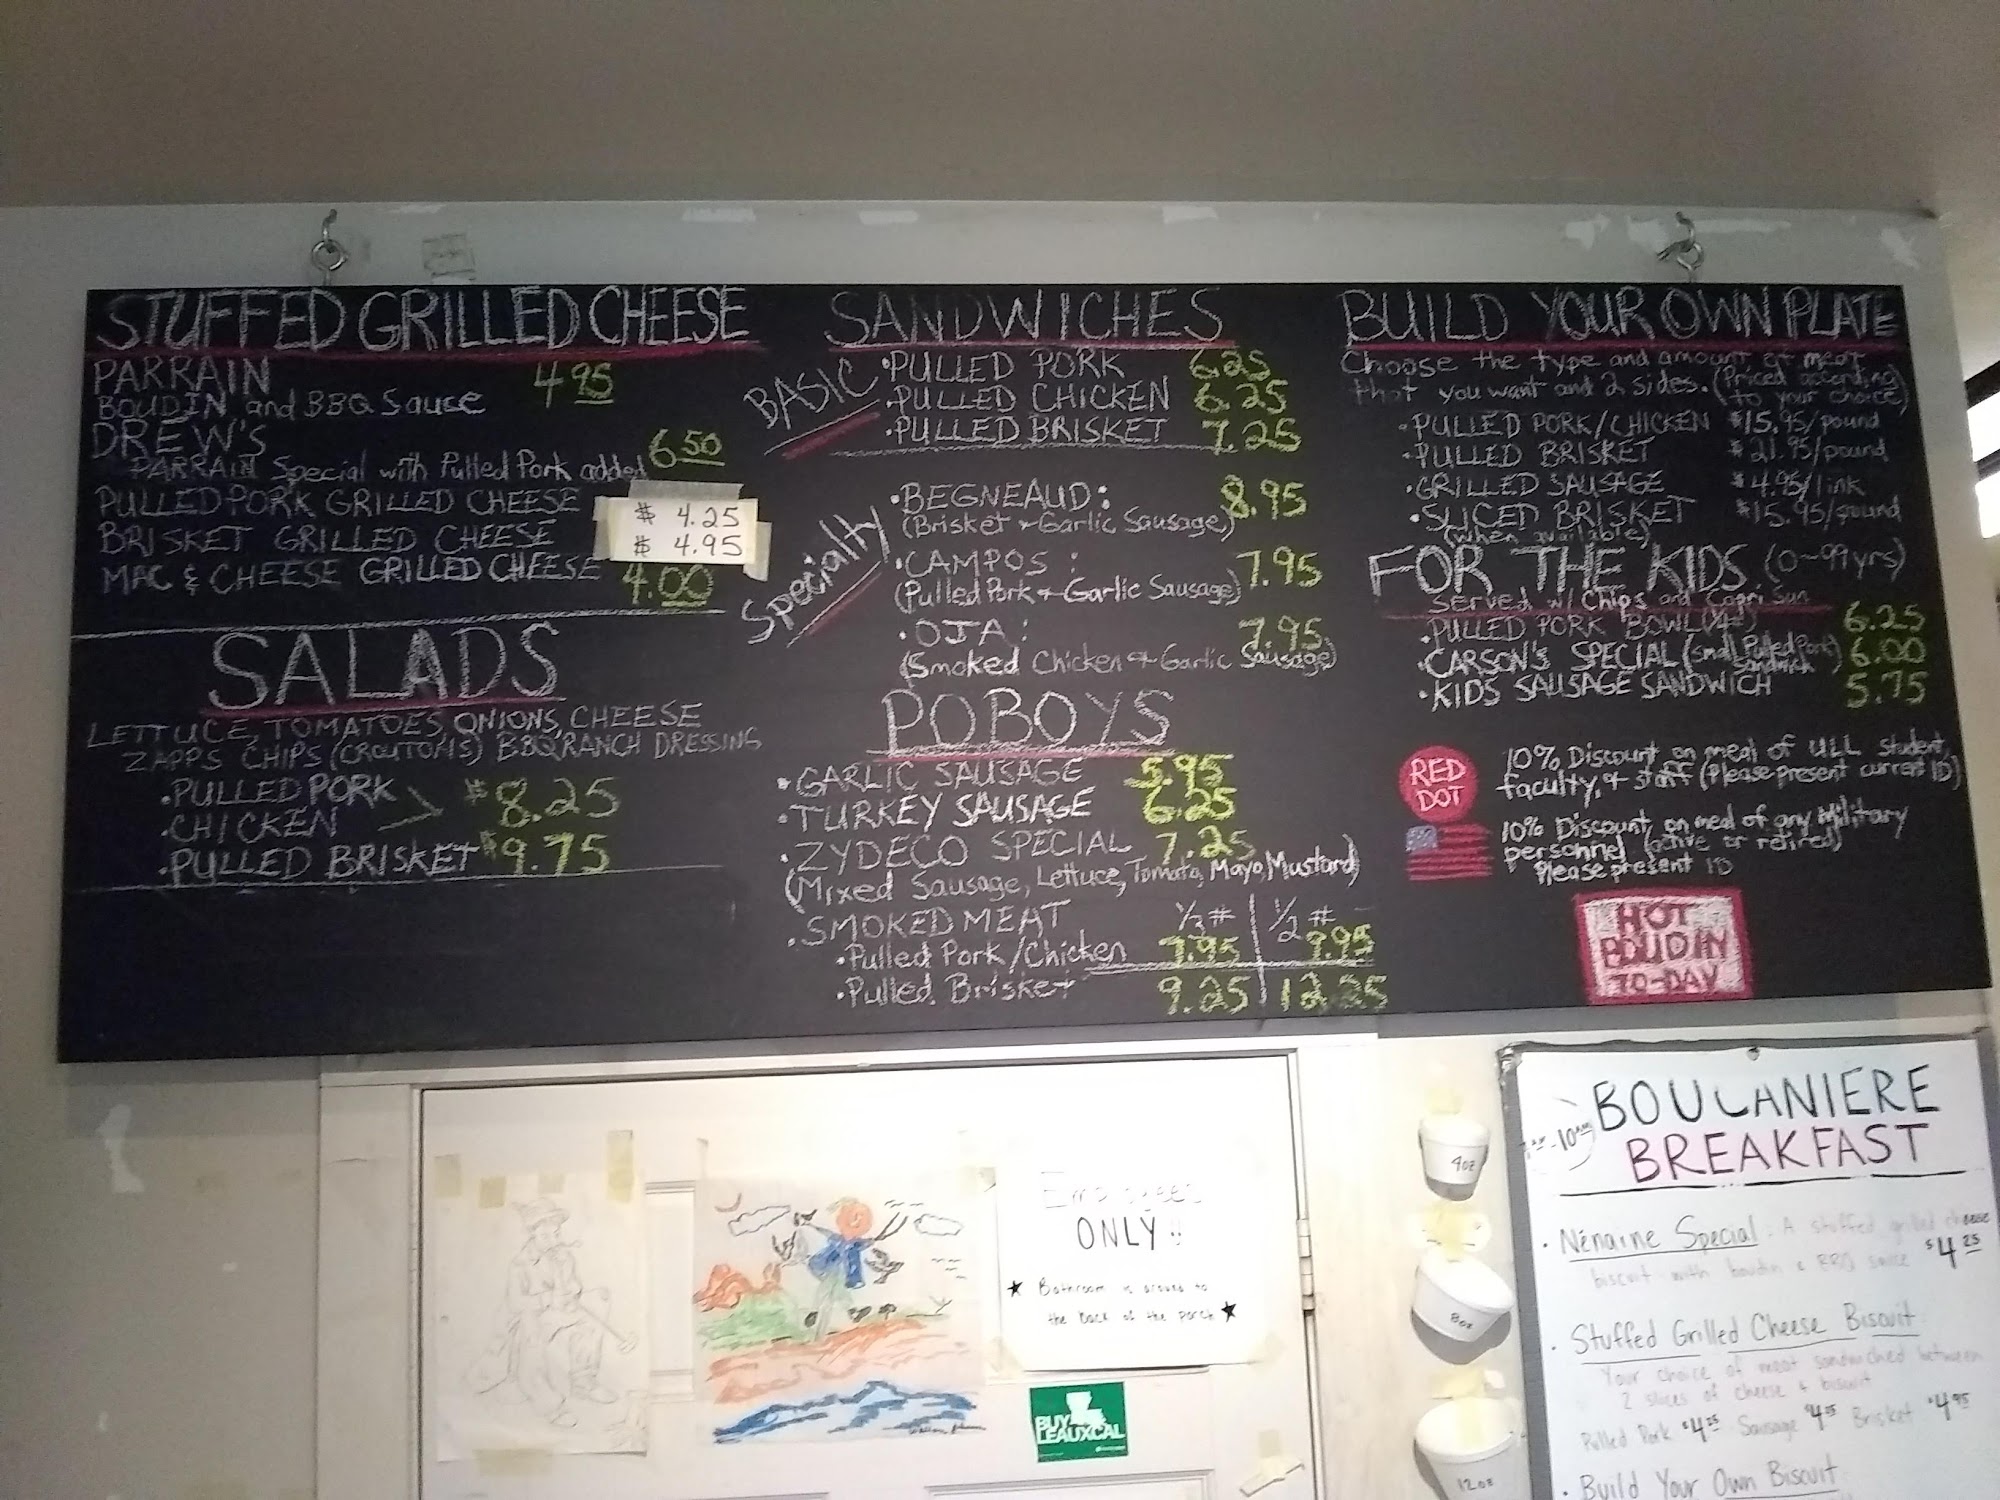 STUFFED GRILLED CHEESE
PARRAIN 4.95
BOUDIN and BBQ Sauce
DREW'S
PARRAIN Special with Pulled Pork added 6.50
PULLED PORK GRILLED CHEESE $ 4.25
BRISKET GRILLED CHEESE $ 4.95
MAC & CHEESE GRILLED CHEESE 4.00
SALADS
LETTUCE, TOMATOES, ONIONS, CHEESE
ZAPPS CHIPS (croutons) BBQ RANCH DRESSING
•PULLED PORK
•CHICKEN $8.25
•PULLED BRISKET $9.75
SANDWICHES
BASIC
•PULLED PORK 6.25
•PULLED CHICKEN 6.25
•PULLED BRISKET 7.25
Specialty
•BEGNEAUD: 8.95
(Brisket + Garlic Sausage)
•CAMPOS: 7.95
(Pulled Pork + Garlic Sausage)
•OJA: 7.95
(Smoked Chicken + Garlic Sausage)
POBOYS
•GARLIC SAUSAGE 5.95
•TURKEY SAUSAGE 6.25
•ZYDECO SPECIAL 7.25
(Mixed Sausage, Lettuce, Tomato, Mayo, Mustard)
•SMOKED MEAT 1/3 # 1/2 #
•Pulled Pork/Chicken 7.95 9.95
•Pulled Brisket 9.25 12.25
BUILD YOUR OWN PLATE
Choose the type and amount of meat
that you want and 2 sides. (Priced according
to your choice)
•PULLED PORK/CHICKEN $15.95/pound
•PULLED BRISKET $21.95/pound
•GRILLED SAUSAGE $4.95/link
•SLICED BRISKET $15.95/pound
(when available)
FOR THE KIDS (0~99yrs)
Served w/ Chips and Capri Sun
•PULLED PORK BOWL 6.25
•CARSON'S SPECIAL (small Pulled Pork Sandwich) 6.00
•KIDS SAUSAGE SANDWICH 5.75
RED
DOT
10% Discount on meal of ULL student,
faculty, + staff (Please present current ID)
10% Discount on meal of any Military
personnel (active or retired)
Please present ID
HOT
BOUDIN
TO-DAY
Employees
ONLY!!
★ Bathroom is around to
the back of the porch ★
BUY
LEAUXCAL
4oz
8oz
12oz
BOULANIERE
7am-10am
BREAKFAST
• Nénaine Special: A stuffed grilled cheese
biscuit with boudin & BBQ sauce $4.25
• Stuffed Grilled Cheese Biscuit
Your choice of meat sandwiched between
2 slices of cheese & biscuit
Pulled Pork $4.25 Sausage $4.25 Brisket $4.95
• Build Your Own Biscuit